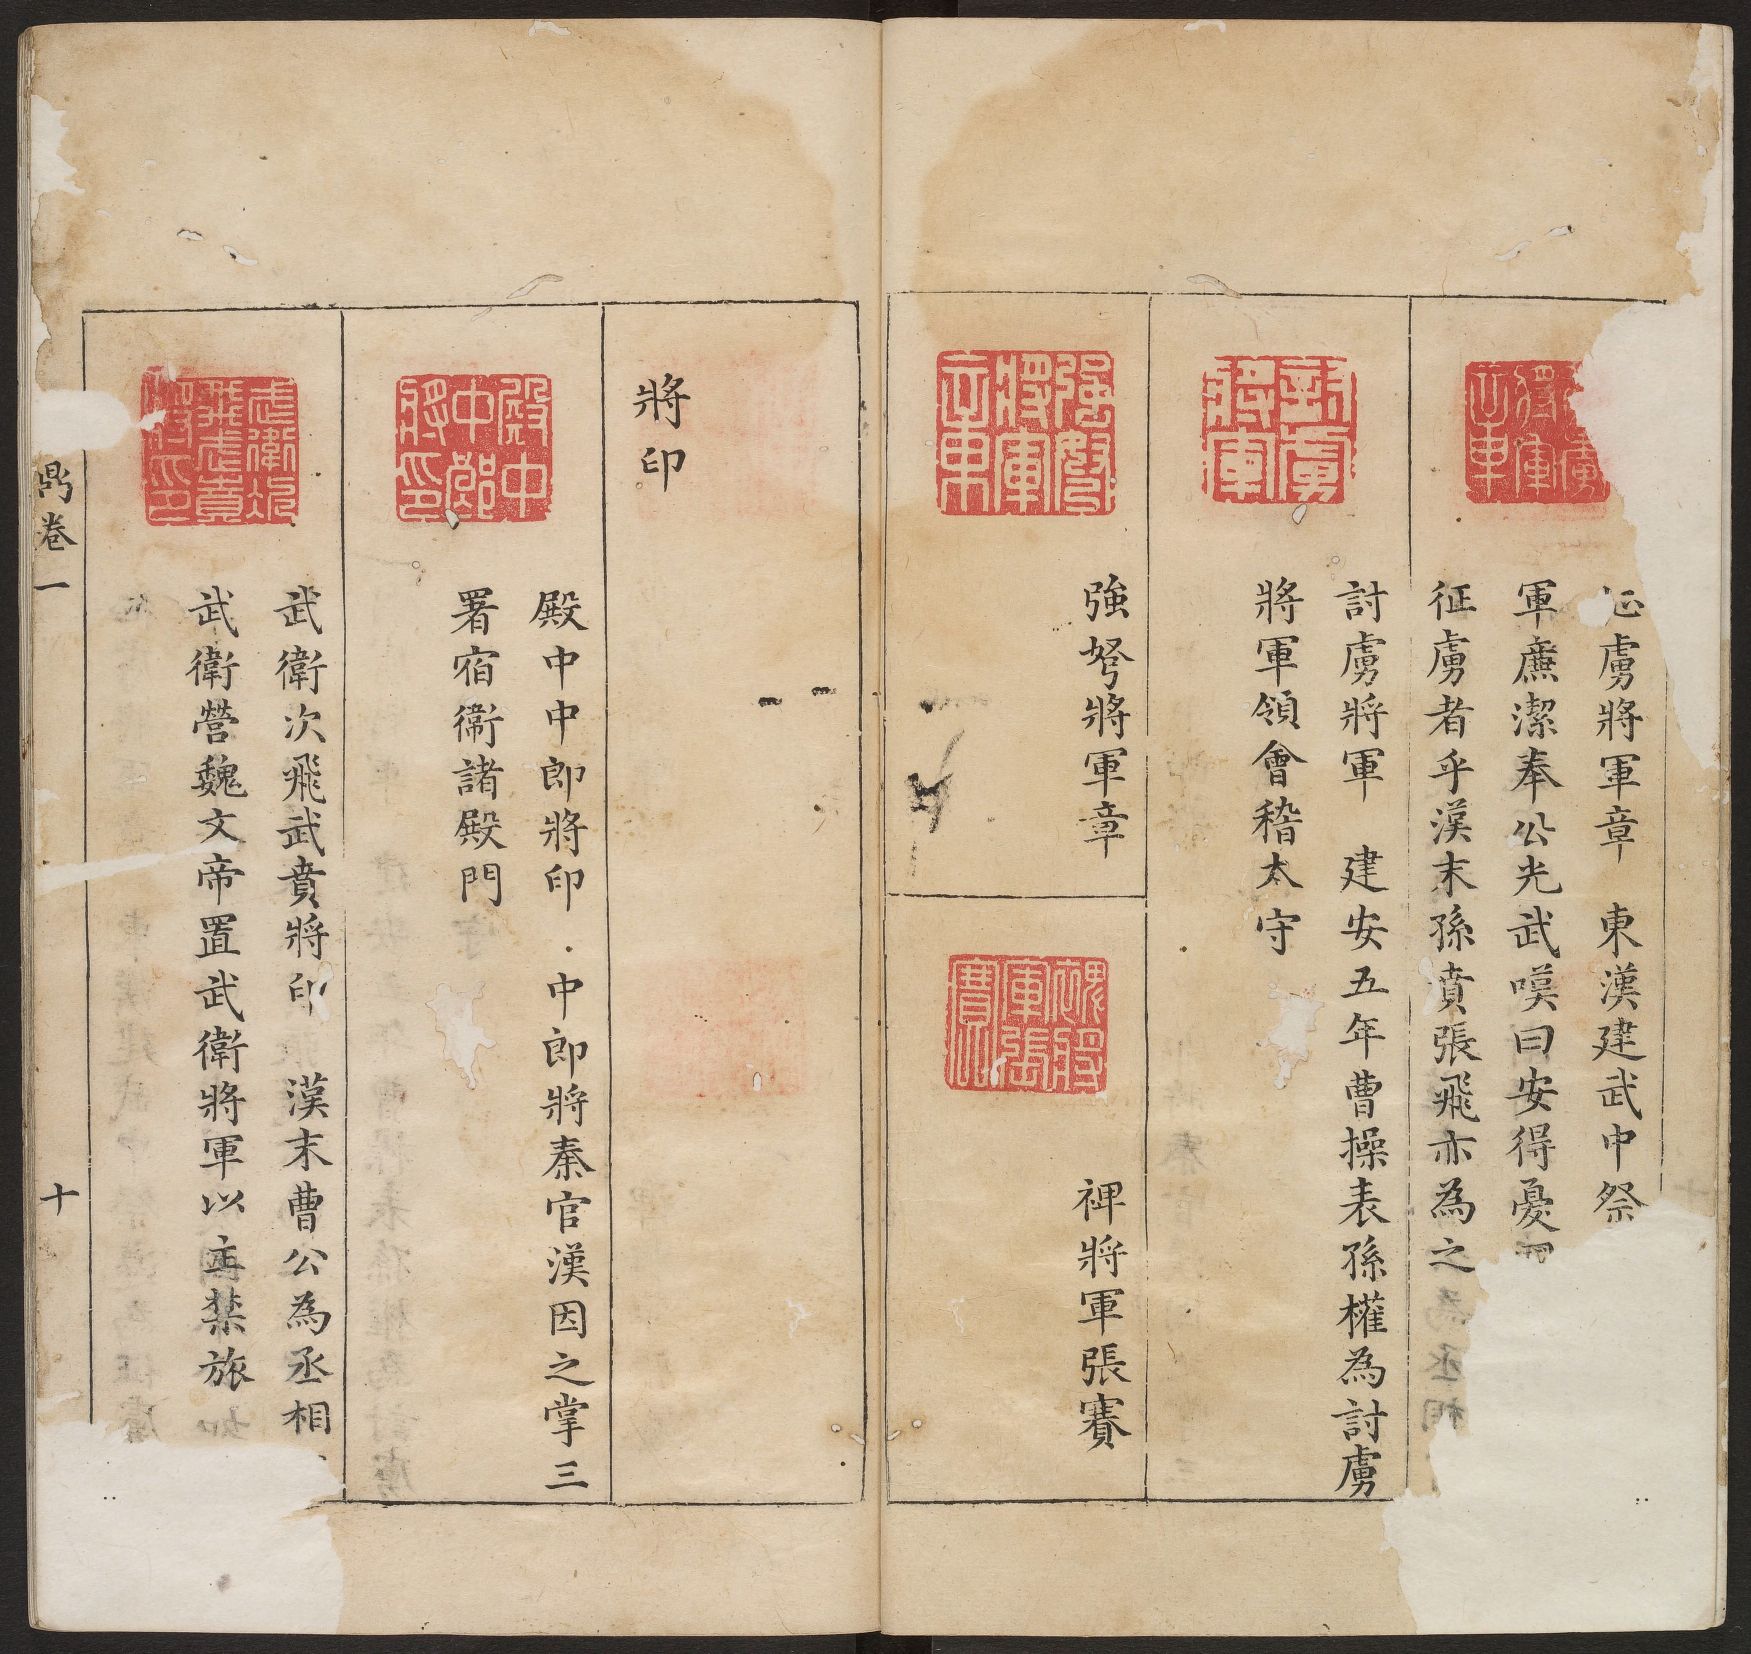 虜將軍章　東漢建武中祭
軍廉潔奉公光武嘆曰安得憂
征虜者乎漢末孫賁張飛亦為之
討虜將軍　建安五年曹操表孫權為討虜
將軍領會稽太守
強弩將軍章
裨將軍張賽
將印
殿中中郎將印　中郎將秦官漢因之掌三
署宿衛諸殿門
武衛次飛武賁將印　漢末曹公為丞相
武衛營魏文帝置武衛將軍以主禁旅
卷一
十